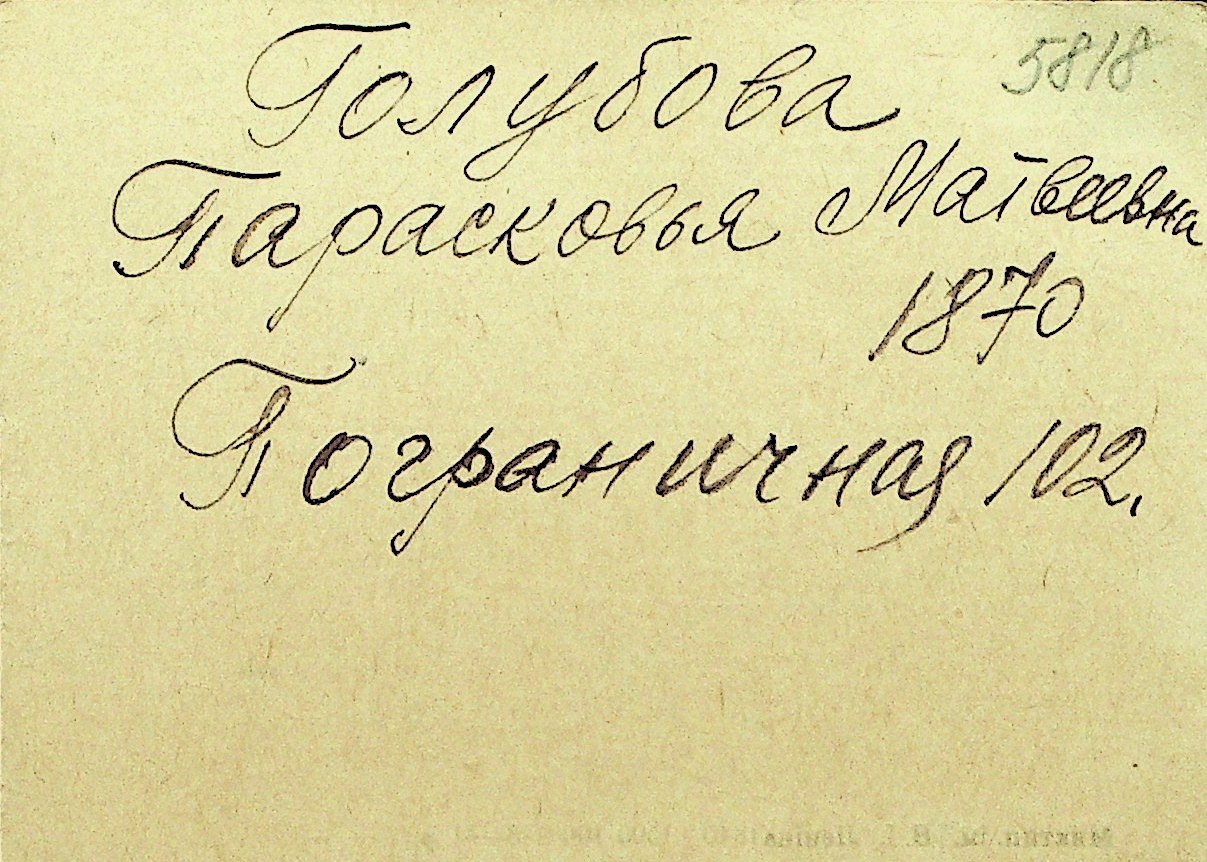 5818
Голубова
Парасковья Матвеевна
1870
Пограничная 102.